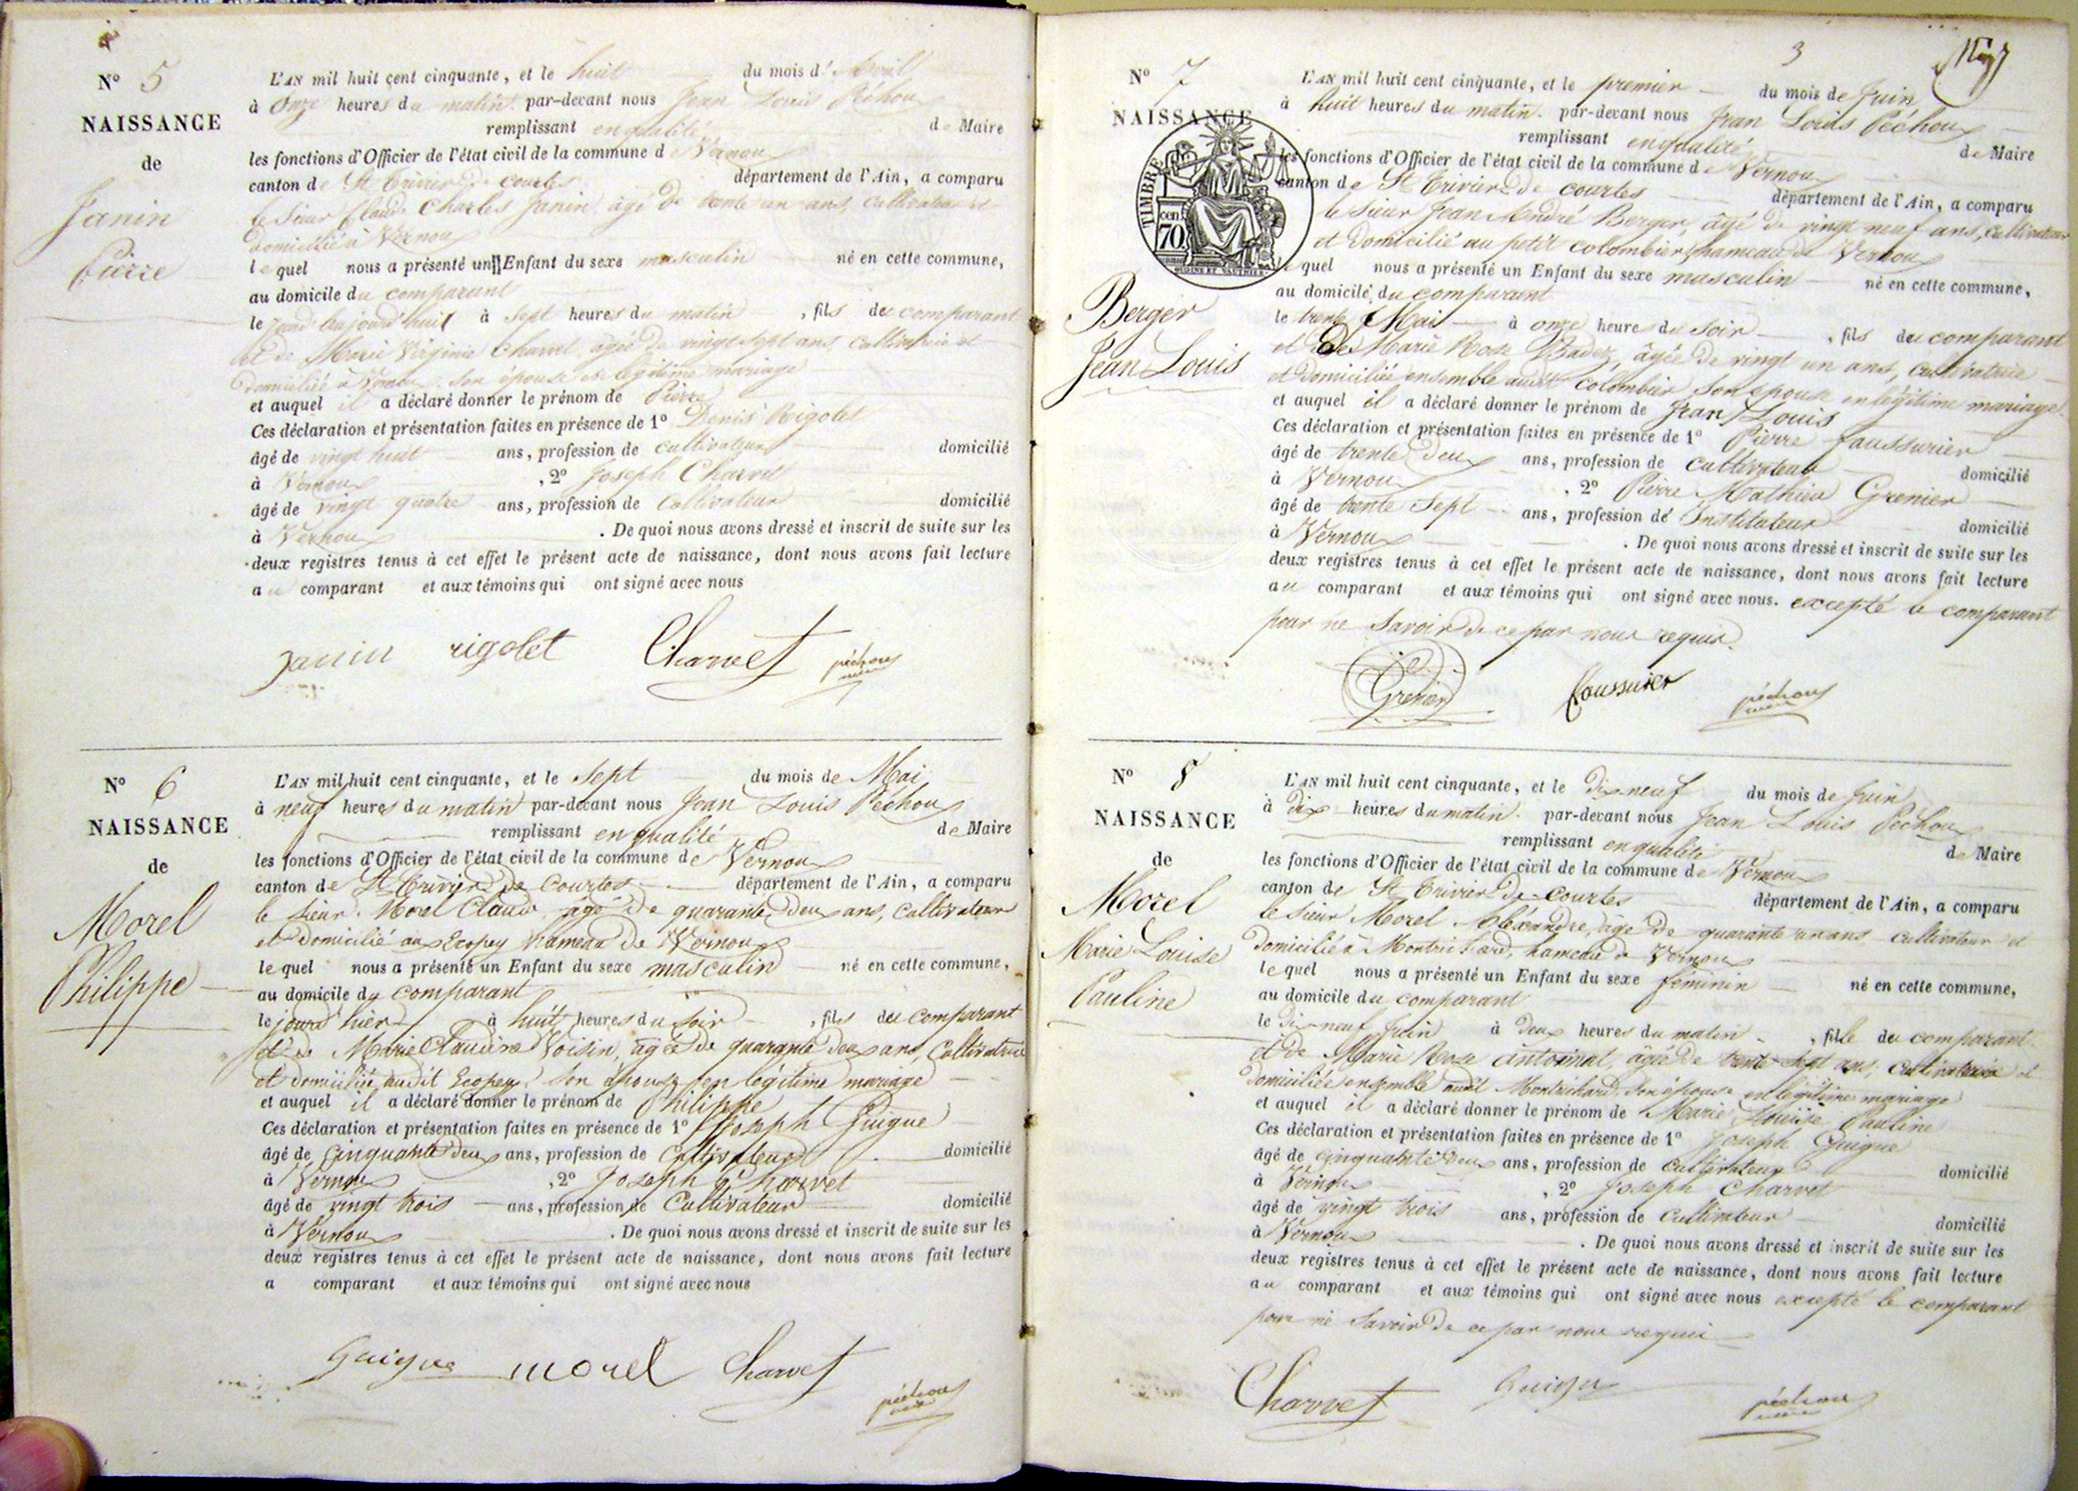 N° 5
NAISSANCE
de
Janin
Pierre
L'AN mil huit cent cinquante, et le huit du mois d'Avril
à Onze heures du matin par-devant nous Jean Louis Péchoux
remplissant en qualité de Maire
les fonctions d'Officier de l'état civil de la commune de Vernoux
canton de St Trivier de courtes département de l'Ain, a comparu
le Sieur Claude Charles Janin, âgé de trente un ans, cultivateur et
domicilié à Vernoux
lequel nous a présenté un Enfant du sexe masculin né en cette commune,
au domicile du comparant
le jour d'aujourd'huit à Sept heures du matin, fils du comparant
et de Marie Virginie Charvet, âgée de vingt sept ans, Cultivatrice et
domiciliée à Vernoux, son épouse en légitime mariage
et auquel il a déclaré donner le prénom de Pierre
Ces déclaration et présentation faites en présence de 1° Denis Rigolet
âgé de vingt huit ans, profession de cultivateur domicilié
à Vernoux, 2° Joseph Charvet
âgé de vingt quatre ans, profession de Cultivateur domicilié
à Vernoux. De quoi nous avons dressé et inscrit de suite sur les
deux registres tenus à cet effet le présent acte de naissance, dont nous avons fait lecture
au comparant et aux témoins qui ont signé avec nous
janin rigolet Charvet péchoux
maire
N° 6
NAISSANCE
de
Morel
Philippe
L'AN mil huit cent cinquante, et le Sept du mois de Mai
à neuf heures du matin par-devant nous Jean Louis Péchoux
remplissant en qualité de Maire
les fonctions d'Officier de l'état civil de la commune de Vernoux
canton de St Trivier de Courtes département de l'Ain, a comparu
le Sieur Morel Claude âgé de quarante deux ans, Cultivateur
et domicilié aux Ecopey hameau de Vernoux
lequel nous a présenté un Enfant du sexe masculin né en cette commune,
au domicile du comparant
le jours d'hier à huit heures du Soir, fils du comparant
et de Marie Claudine Voisin, âgée de quarante deux ans, Cultivatrice
et domiciliée audit Ecopey, Son épouse en légitime mariage
et auquel il a déclaré donner le prénom de Philippe
Ces déclaration et présentation faites en présence de 1° Joseph Guigue
âgé de Cinquante deux ans, profession de Cultivateur domicilié
à Vernoux, 2° Joseph Charvet
âgé de vingt trois ans, profession de Cultivateur domicilié
à Vernoux. De quoi nous avons dressé et inscrit de suite sur les
deux registres tenus à cet effet le présent acte de naissance, dont nous avons fait lecture
a comparant et aux témoins qui ont signé avec nous
Guigue morel Charvet
péchoux
maire
3
N° 7
NAISSANCE
TIMBRE
cen
70
OUDINE ET GAUTHIER
Berger
Jean Louis
L'AN mil huit cent cinquante, et le premier du mois de Juin
à huit heures du matin. par-devant nous Jean Louis Péchoux
remplissant en qualité de Maire
les fonctions d'Officier de l'état civil de la commune de Vernoux
canton de St Trivier de courtes département de l'Ain, a comparu
le sieur Jean André Berger, âgé de vingt neuf ans, cultivateur
et domicilié au petit colombier hameau de Vernoux
lequel nous a présenté un Enfant du sexe masculin né en cette commune,
au domicile du comparant
le trente Mai à onze heures du Soir, fils du comparant
et de Marie Rose Badez, âgée de vingt un ans, cultivatrice
et domiciliée ensemble audit colombier, son épouse en légitime mariage.
et auquel il a déclaré donner le prénom de Jean Louis
Ces déclaration et présentation faites en présence de 1° Pierre faussurier
âgé de trente deux ans, profession de cultivateur domicilié
à Vernoux, 2° Pierre Mathieu Grenier
âgé de trente Sept ans, profession de Instituteur domicilié
à Vernoux. De quoi nous avons dressé et inscrit de suite sur les
deux registres tenus à cet effet le présent acte de naissance, dont nous avons fait lecture
au comparant et aux témoins qui ont signé avec nous. excepté le comparant
pour ne Savoir de ce par nous requis.
Grenier faussurier péchoux
maire
N° 8
NAISSANCE
de
Morel
Marie Louise
Pauline
L'AN mil huit cent cinquante, et le dix neuf du mois de Juin
à dix heures du matin. par-devant nous Jean Louis Péchoux
remplissant en qualité de Maire
les fonctions d'Officier de l'état civil de la commune de Vernoux
canton de St Trivier de courtes département de l'Ain, a comparu
le Sieur Morel Aléxandre, âgé de quarante un ans cultivateur et
domicilié à Montrichard, hameau de Vernoux
lequel nous a présenté un Enfant du sexe féminin né en cette commune,
au domicile du comparant
le dix neuf Juin à deux heures du matin, fille du comparant
et de Marie Rose antoinat, âgée de trente Sept ans, cultivatrice et
domiciliée ensemble audit Montrichard, son épouse en légitime mariage
et auquel il a déclaré donner le prénom de Marie Louise Pauline
Ces déclaration et présentation faites en présence de 1° Joseph Guigue
âgé de cinquante deux ans, profession de cultivateur domicilié
à Vernoux, 2° Joseph Charvet
âgé de vingt trois ans, profession de cultivateur domicilié
à Vernoux. De quoi nous avons dressé et inscrit de suite sur les
deux registres tenus à cet effet le présent acte de naissance, dont nous avons fait lecture
au comparant et aux témoins qui ont signé avec nous excepté le comparant
pour ne Savoir de ce par nous requis
Charvet Guigue péchoux
maire